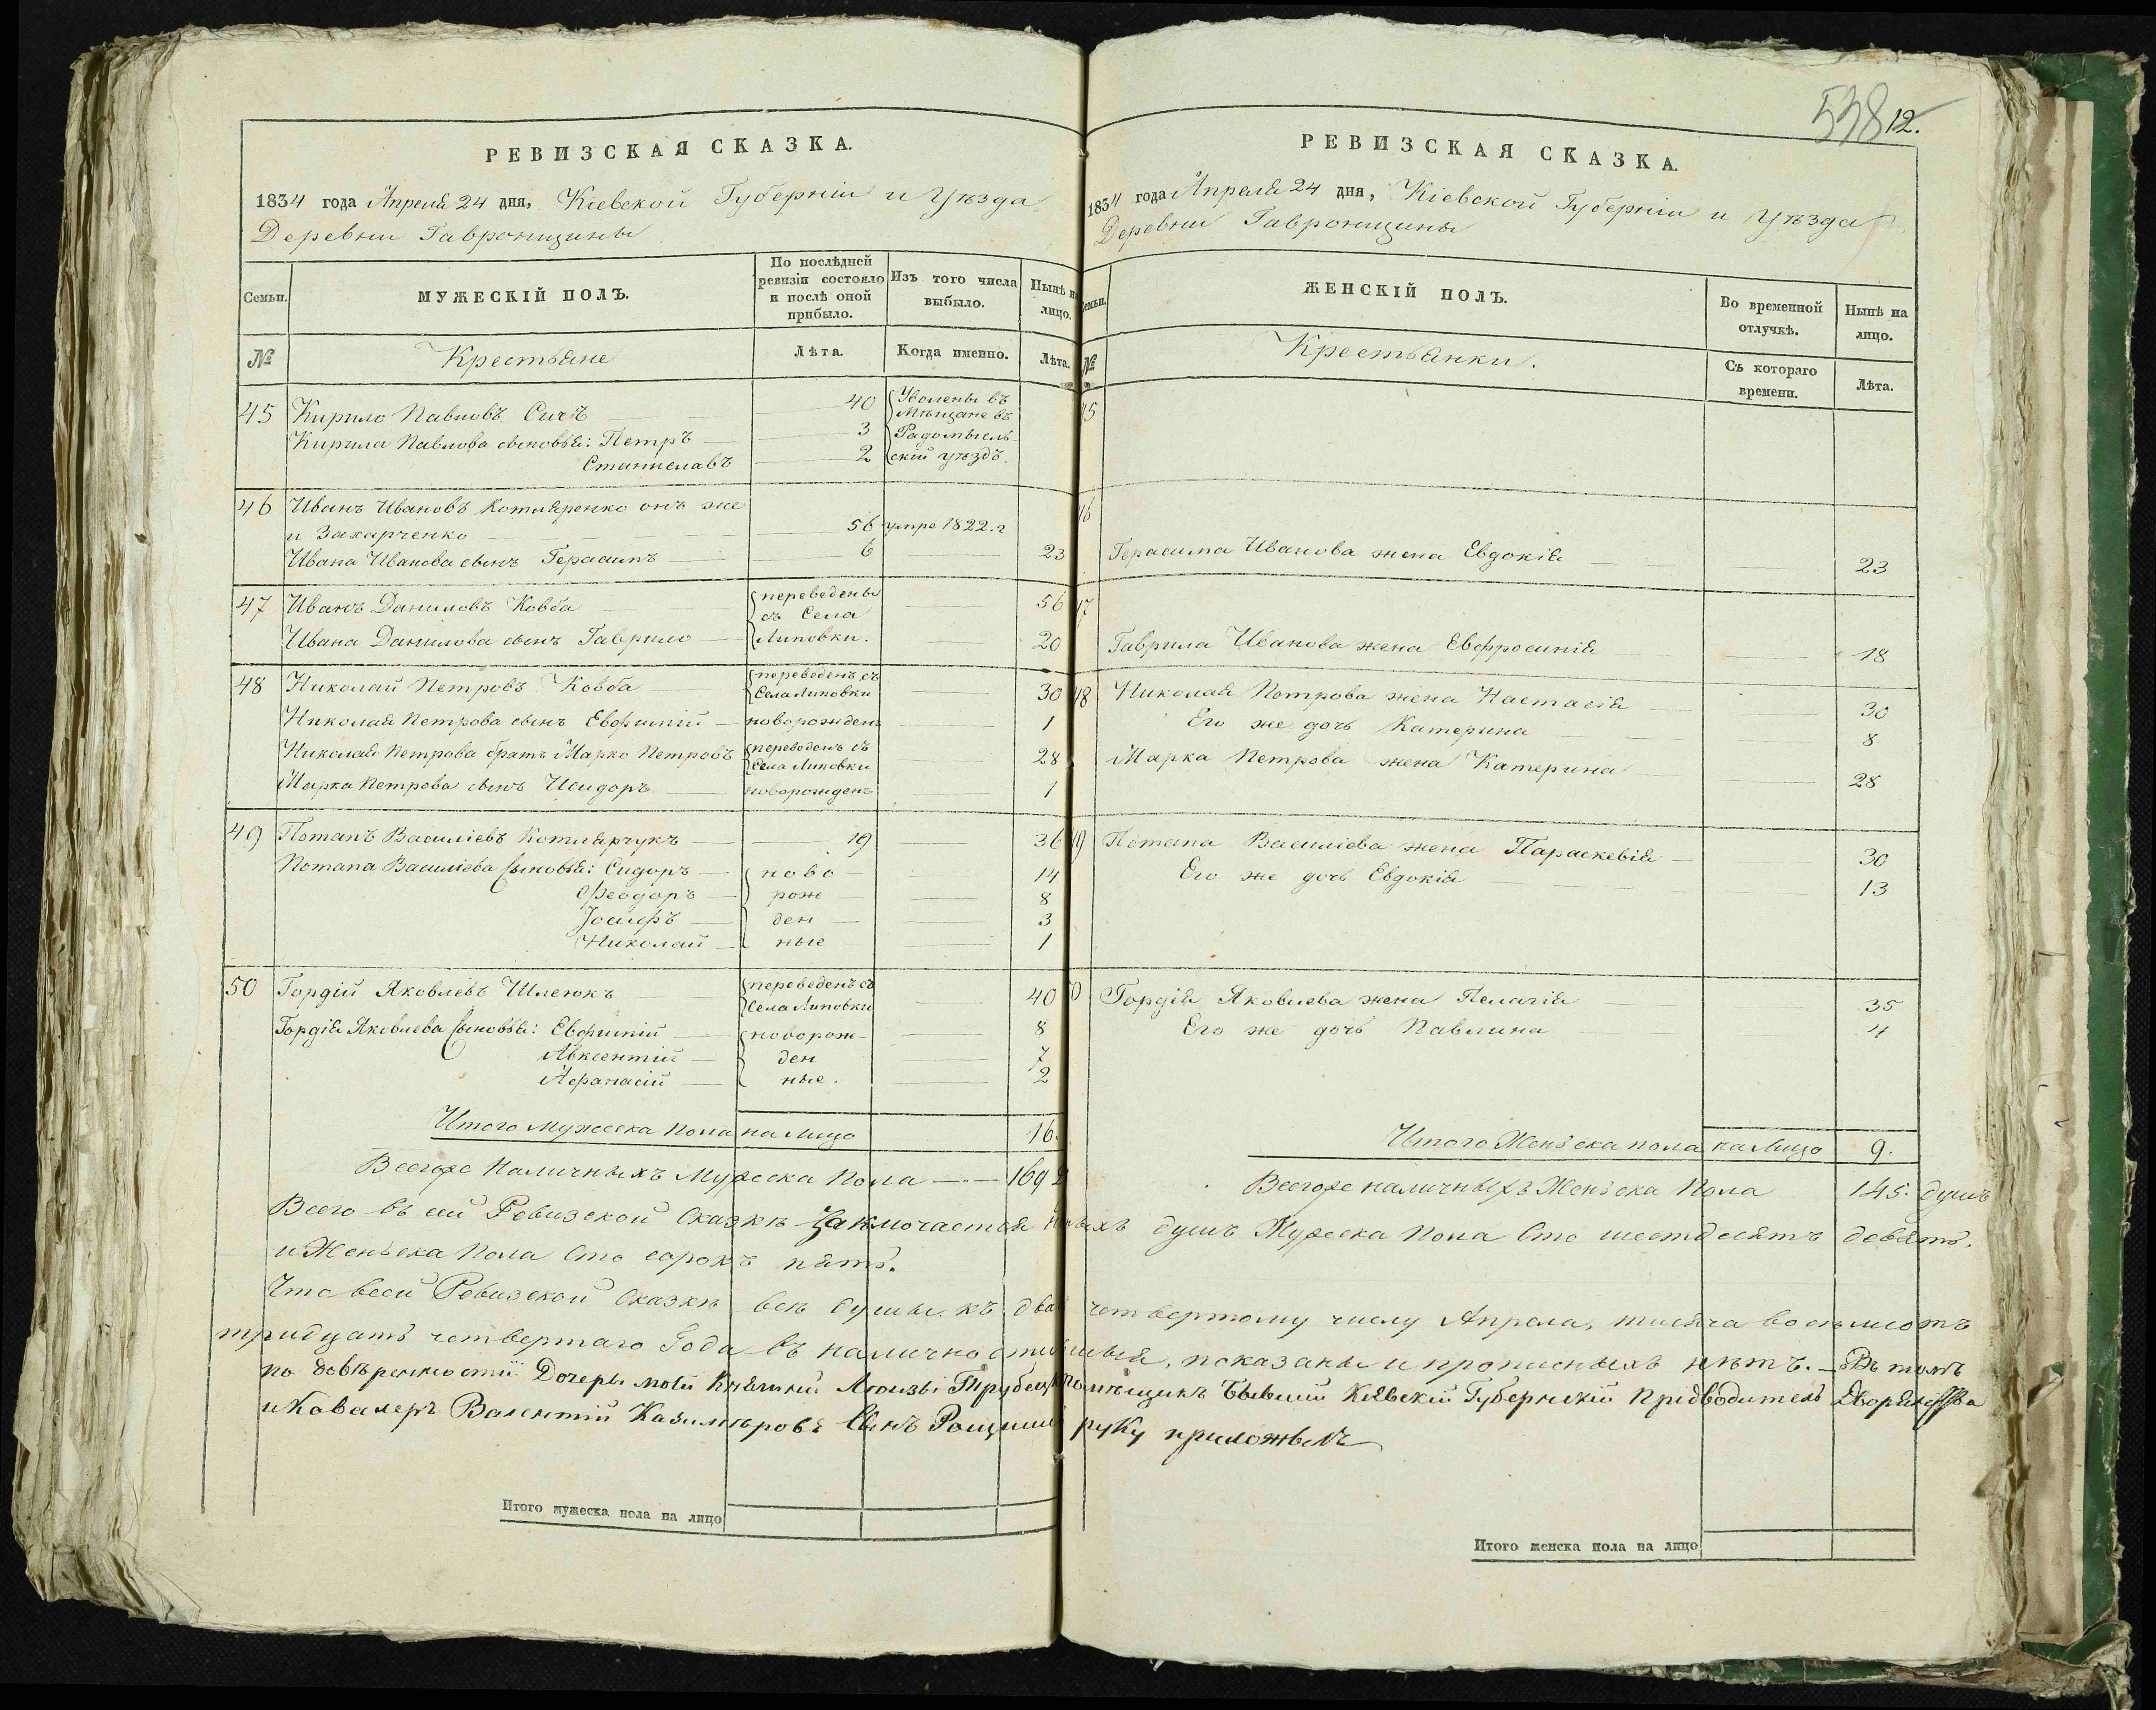 РЕВИЗСКАЯ СКАЗКА.
1834 года Апреля 24 дня, Кіевской Губерніи и Уѣзда
Деревни Гавронщины
Семьи.
МУЖЕСКІЙ ПОЛЪ.
По послѣдней ревизіи состояло и послѣ оной прибыло.
Изъ того числа выбыло.
Нынѣ на лицо.
№
Крестьяне
Лѣта.
Когда именно.
Лѣта.
45 Кирило Павловъ Сичъ 40 Уволены въ
Мѣщане въ
Кирила Павлова сыновья: Петръ 3 Радомысль-
Станиславъ 2 скій уѣздъ.
46 Иванъ Ивановъ Котляренко онъ же
и Захарченко 56 умре 1822. г
Ивана Иванова сынъ Герасимъ 6 23
47 Иванъ Даниловъ Ковба переведены 56
съ Села
Ивана Данилова сынъ Гаврило Липовки. 20
48 Николай Петровъ Ковба переведенъ съ
Села Липовки 30
Николая Петрова сынъ Евфимій новорожденъ 1
Николая Петрова братъ Марко Петровъ переведенъ съ
Села Липовки 28
Марка Петрова сынъ Исидоръ новорожденъ 1
49 Потапъ Василіевъ Котлярчукъ 19 36
Потапа Василіева сыновья: Сидоръ ново 14
Феодоръ рож 8
Іосифъ ден 3
Николай ные 1
50 Гордій Яковлевъ Шлеюкъ переведенъ съ
Села Липовки 40
Гордія Яковлева сыновья: Евфимій новорож- 8
Авксентій ден 7
Афанасій ные. 2
Итого мужеска пола на лицо 16.
Всегоже Наличныхъ Мужеска Пола 169
РЕВИЗСКАЯ СКАЗКА.
538 12.
1834 года Апреля 24 дня, Кіевской Губерніи и Уѣзда
Деревни Гавронщины
Семьи.
ЖЕНСКІЙ ПОЛЪ.
Во временной отлучкѣ.
Нынѣ на лицо.
№
Крестьянки.
Съ котораго времени.
Лѣта.
45
46
Герасима Иванова жена Евдокія 23
47
Гаврила Иванова жена Евфросинія 18
48 Николая Петрова жена Настасія 30
Его же дочь Катерина 8
Марка Петрова жена Катерина 28
49 Потапа Василіева жена Параскевія 30
Его же дочь Евдокія 13
50 Гордія Яковлева жена Пелагія 35
Его же дочь Павлина 4
Итого Женьска пола на лицо 9.
Всегоже наличныхъ Женьска Пола 145. душъ
Всего въ сей Ревизской Сказкѣ Заключается душъ Мужеска Пола Сто шестдесятъ девять.
и Женьска Пола Сто сорокъ пять.
Что въ сей Ревизской Сказкѣ всѣ души къ два четвертому числу Апреля, тысяча восемьсотъ
тридцать четвертаго Года въ налично показаны и прописныхъ нѣтъ. — Въ томъ
по довѣренности Дочеры моей Княгини Люизы Помѣщикъ Бывшій Кіевскій Губернскій Предводитель Дворянства
и Кавалеръ Валентій Казимѣровъ Сынъ руку приложилъ
Итого мужеска пола на лицо
Итого женска пола на лицо